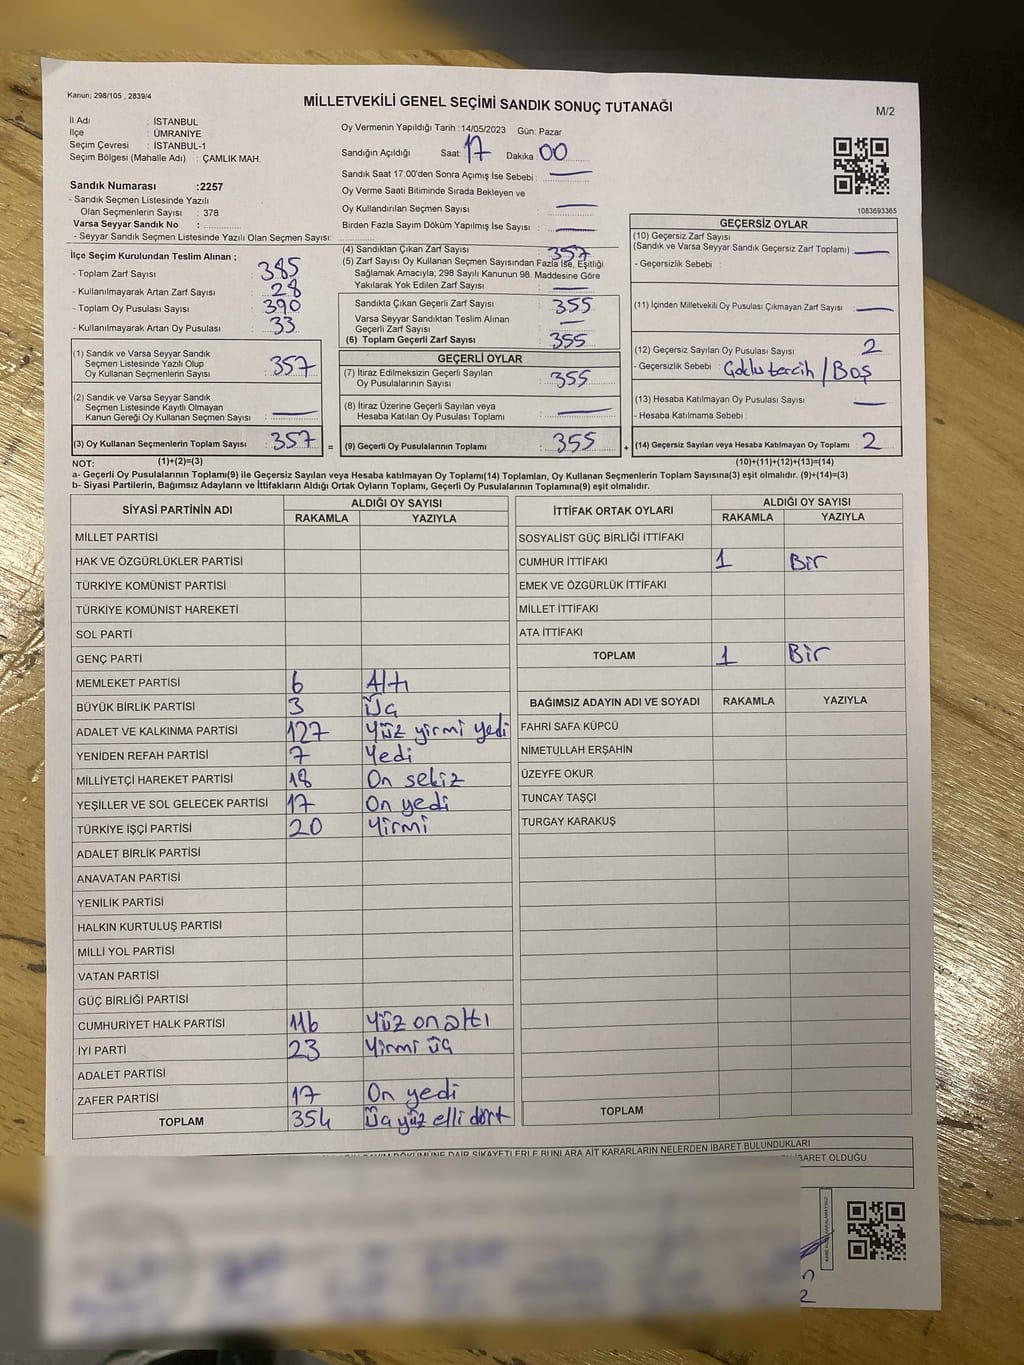 Kanun: 298/105 , 2839/4
MİLLETVEKİLİ GENEL SEÇİMİ SANDIK SONUÇ TUTANAĞI
M/2
İl Adı : İSTANBUL
İlçe : ÜMRANİYE
Seçim Çevresi : İSTANBUL-1
Seçim Bölgesi (Mahalle Adı) : ÇAMLIK MAH.
Oy Vermenin Yapıldığı Tarih :14/05/2023 Gün: Pazar
Sandığın Açıldığı Saat: 17 Dakika : 00
Sandık Saat 17:00'den Sonra Açımış İse Sebebi :
Oy Verme Saati Bitiminde Sırada Bekleyen ve
Oy Kullandırılan Seçmen Sayısı :
Birden Fazla Sayım Döküm Yapılmış İse Sayısı :
1083693365
Sandık Numarası :2257
- Sandık Seçmen Listesinde Yazılı
Olan Seçmenlerin Sayısı : 378
Varsa Seyyar Sandık No :
- Seyyar Sandık Seçmen Listesinde Yazılı Olan Seçmen Sayısı:
İlçe Seçim Kurulundan Teslim Alınan ;
- Toplam Zarf Sayısı : 385
- Kullanılmayarak Artan Zarf Sayısı : 28
- Toplam Oy Pusulası Sayısı : 390
- Kullanılmayarak Artan Oy Pusulası : 33
(1) Sandık ve Varsa Seyyar Sandık
Seçmen Listesinde Yazılı Olup
Oy Kullanan Seçmenlerin Sayısı : 357
(2) Sandık ve Varsa Seyyar Sandık
Seçmen Listesinde Kayıtlı Olmayan
Kanun Gereği Oy Kullanan Seçmen Sayısı :
(3) Oy Kullanan Seçmenlerin Toplam Sayısı : 357
(4) Sandıktan Çıkan Zarf Sayısı : 357
(5) Zarf Sayısı Oy Kullanan Seçmen Sayısından Fazla İse, Eşitliği
Sağlamak Amacıyla, 298 Sayılı Kanunun 98. Maddesine Göre
Yakılarak Yok Edilen Zarf Sayısı :
Sandıkta Çıkan Geçerli Zarf Sayısı : 355
Varsa Seyyar Sandıktan Teslim Alınan
Geçerli Zarf Sayısı :
(6) Toplam Geçerli Zarf Sayısı : 355
GEÇERLİ OYLAR
(7) İtiraz Edilmeksizin Geçerli Sayılan
Oy Pusulalarının Sayısı : 355
(8) İtiraz Üzerine Geçerli Sayılan veya
Hesaba Katılan Oy Pusulası Toplamı :
= (9) Geçerli Oy Pusulalarının Toplamı : 355 +
GEÇERSİZ OYLAR
(10) Geçersiz Zarf Sayısı
(Sandık ve Varsa Seyyar Sandık Geçersiz Zarf Toplamı) :
- Geçersizlik Sebebi :
(11) İçinden Milletvekili Oy Pusulası Çıkmayan Zarf Sayısı :
(12) Geçersiz Sayılan Oy Pusulası Sayısı : 2
- Geçersizlik Sebebi : Çoklu tercih / Boş
(13) Hesaba Katılmayan Oy Pusulası Sayısı :
- Hesaba Katılmama Sebebi :
(14) Geçersiz Sayılan veya Hesaba Katılmayan Oy Toplamı : 2
NOT: (1)+(2)=(3) (10)+(11)+(12)+(13)=(14)
a- Geçerli Oy Pusulalarının Toplamı(9) ile Geçersiz Sayılan veya Hesaba katılmayan Oy Toplamı(14) Toplamları, Oy Kullanan Seçmenlerin Toplam Sayısına(3) eşit olmalıdır. (9)+(14)=(3)
b- Siyasi Partilerin, Bağımsız Adayların ve İttifakların Aldığı Ortak Oyların Toplamı, Geçerli Oy Pusulalarının Toplamına(9) eşit olmalıdır.
SİYASİ PARTİNİN ADI ALDIĞI OY SAYISI
RAKAMLA YAZIYLA
MİLLET PARTİSİ
HAK VE ÖZGÜRLÜKLER PARTİSİ
TÜRKİYE KOMÜNİST PARTİSİ
TÜRKİYE KOMÜNİST HAREKETİ
SOL PARTİ
GENÇ PARTİ
MEMLEKET PARTİSİ 6 Altı
BÜYÜK BİRLİK PARTİSİ 3 Üç
ADALET VE KALKINMA PARTİSİ 127 Yüz yirmi yedi
YENİDEN REFAH PARTİSİ 7 Yedi
MİLLİYETÇİ HAREKET PARTİSİ 18 On sekiz
YEŞİLLER VE SOL GELECEK PARTİSİ 17 On yedi
TÜRKİYE İŞÇİ PARTİSİ 20 Yirmi
ADALET BİRLİK PARTİSİ
ANAVATAN PARTİSİ
YENİLİK PARTİSİ
HALKIN KURTULUŞ PARTİSİ
MİLLİ YOL PARTİSİ
VATAN PARTİSİ
GÜÇ BİRLİĞİ PARTİSİ
CUMHURİYET HALK PARTİSİ 116 Yüz on altı
İYİ PARTİ 23 Yirmi üç
ADALET PARTİSİ
ZAFER PARTİSİ 17 On yedi
TOPLAM 354 Üç yüz elli dört
İTTİFAK ORTAK OYLARI ALDIĞI OY SAYISI
RAKAMLA YAZIYLA
SOSYALİST GÜÇ BİRLİĞİ İTTİFAKI
CUMHUR İTTİFAKI 1 Bir
EMEK VE ÖZGÜRLÜK İTTİFAKI
MİLLET İTTİFAKI
ATA İTTİFAKI
TOPLAM 1 Bir
BAĞIMSIZ ADAYIN ADI VE SOYADI RAKAMLA YAZIYLA
FAHRİ SAFA KÜPCÜ
NİMETULLAH ERŞAHİN
ÜZEYFE OKUR
TUNCAY TAŞÇI
TURGAY KARAKUŞ
TOPLAM
DÖKÜMÜNE DAİR ŞİKAYETLERLE BUNLARA AİT KARARLARIN NELERDEN İBARET BULUNDUKLARI
İBARET OLDUĞU